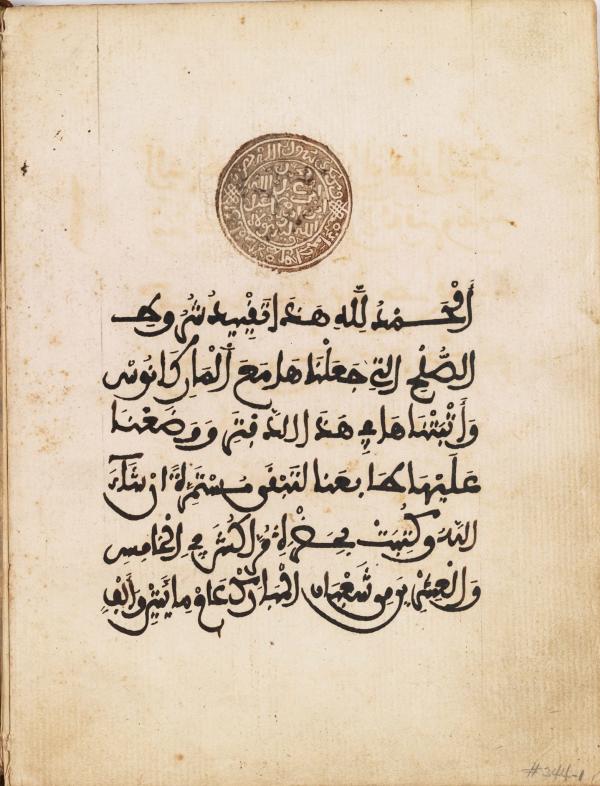 الْحَمْدُ لِلّهِ هَذَا تَقْيِيدُ شُرُوطِ
الصُّلْحِ التِي جَعَلْنَاهَا مَعَ الْمَارِكَانُوسْ
وَأَثْبَتْنَاهَا فِي هَذَا الدَّفْتَرِ وَوَضَعْنَا
عَلَيْهَا طَابِعَنَا لِتَبْقَى مُسْتَمِرَّةً إن شَآءَ
اللهُ وَكُتِبَتْ بِحَضْرَةِ مُرَّاكُشَ فِي الْخَامِسِ
وَالْعِشْرِينَ مِن شَعْبَان الْمُبَارَكِ عَامَ مِايَتَيْنِ وَأَلْفٍ
#344-1